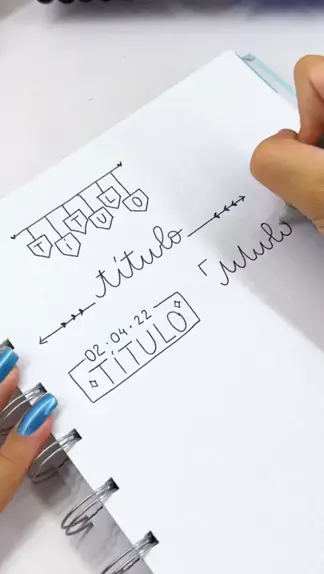 TÍTULO
título
Título
02.04.22
TÍTULO